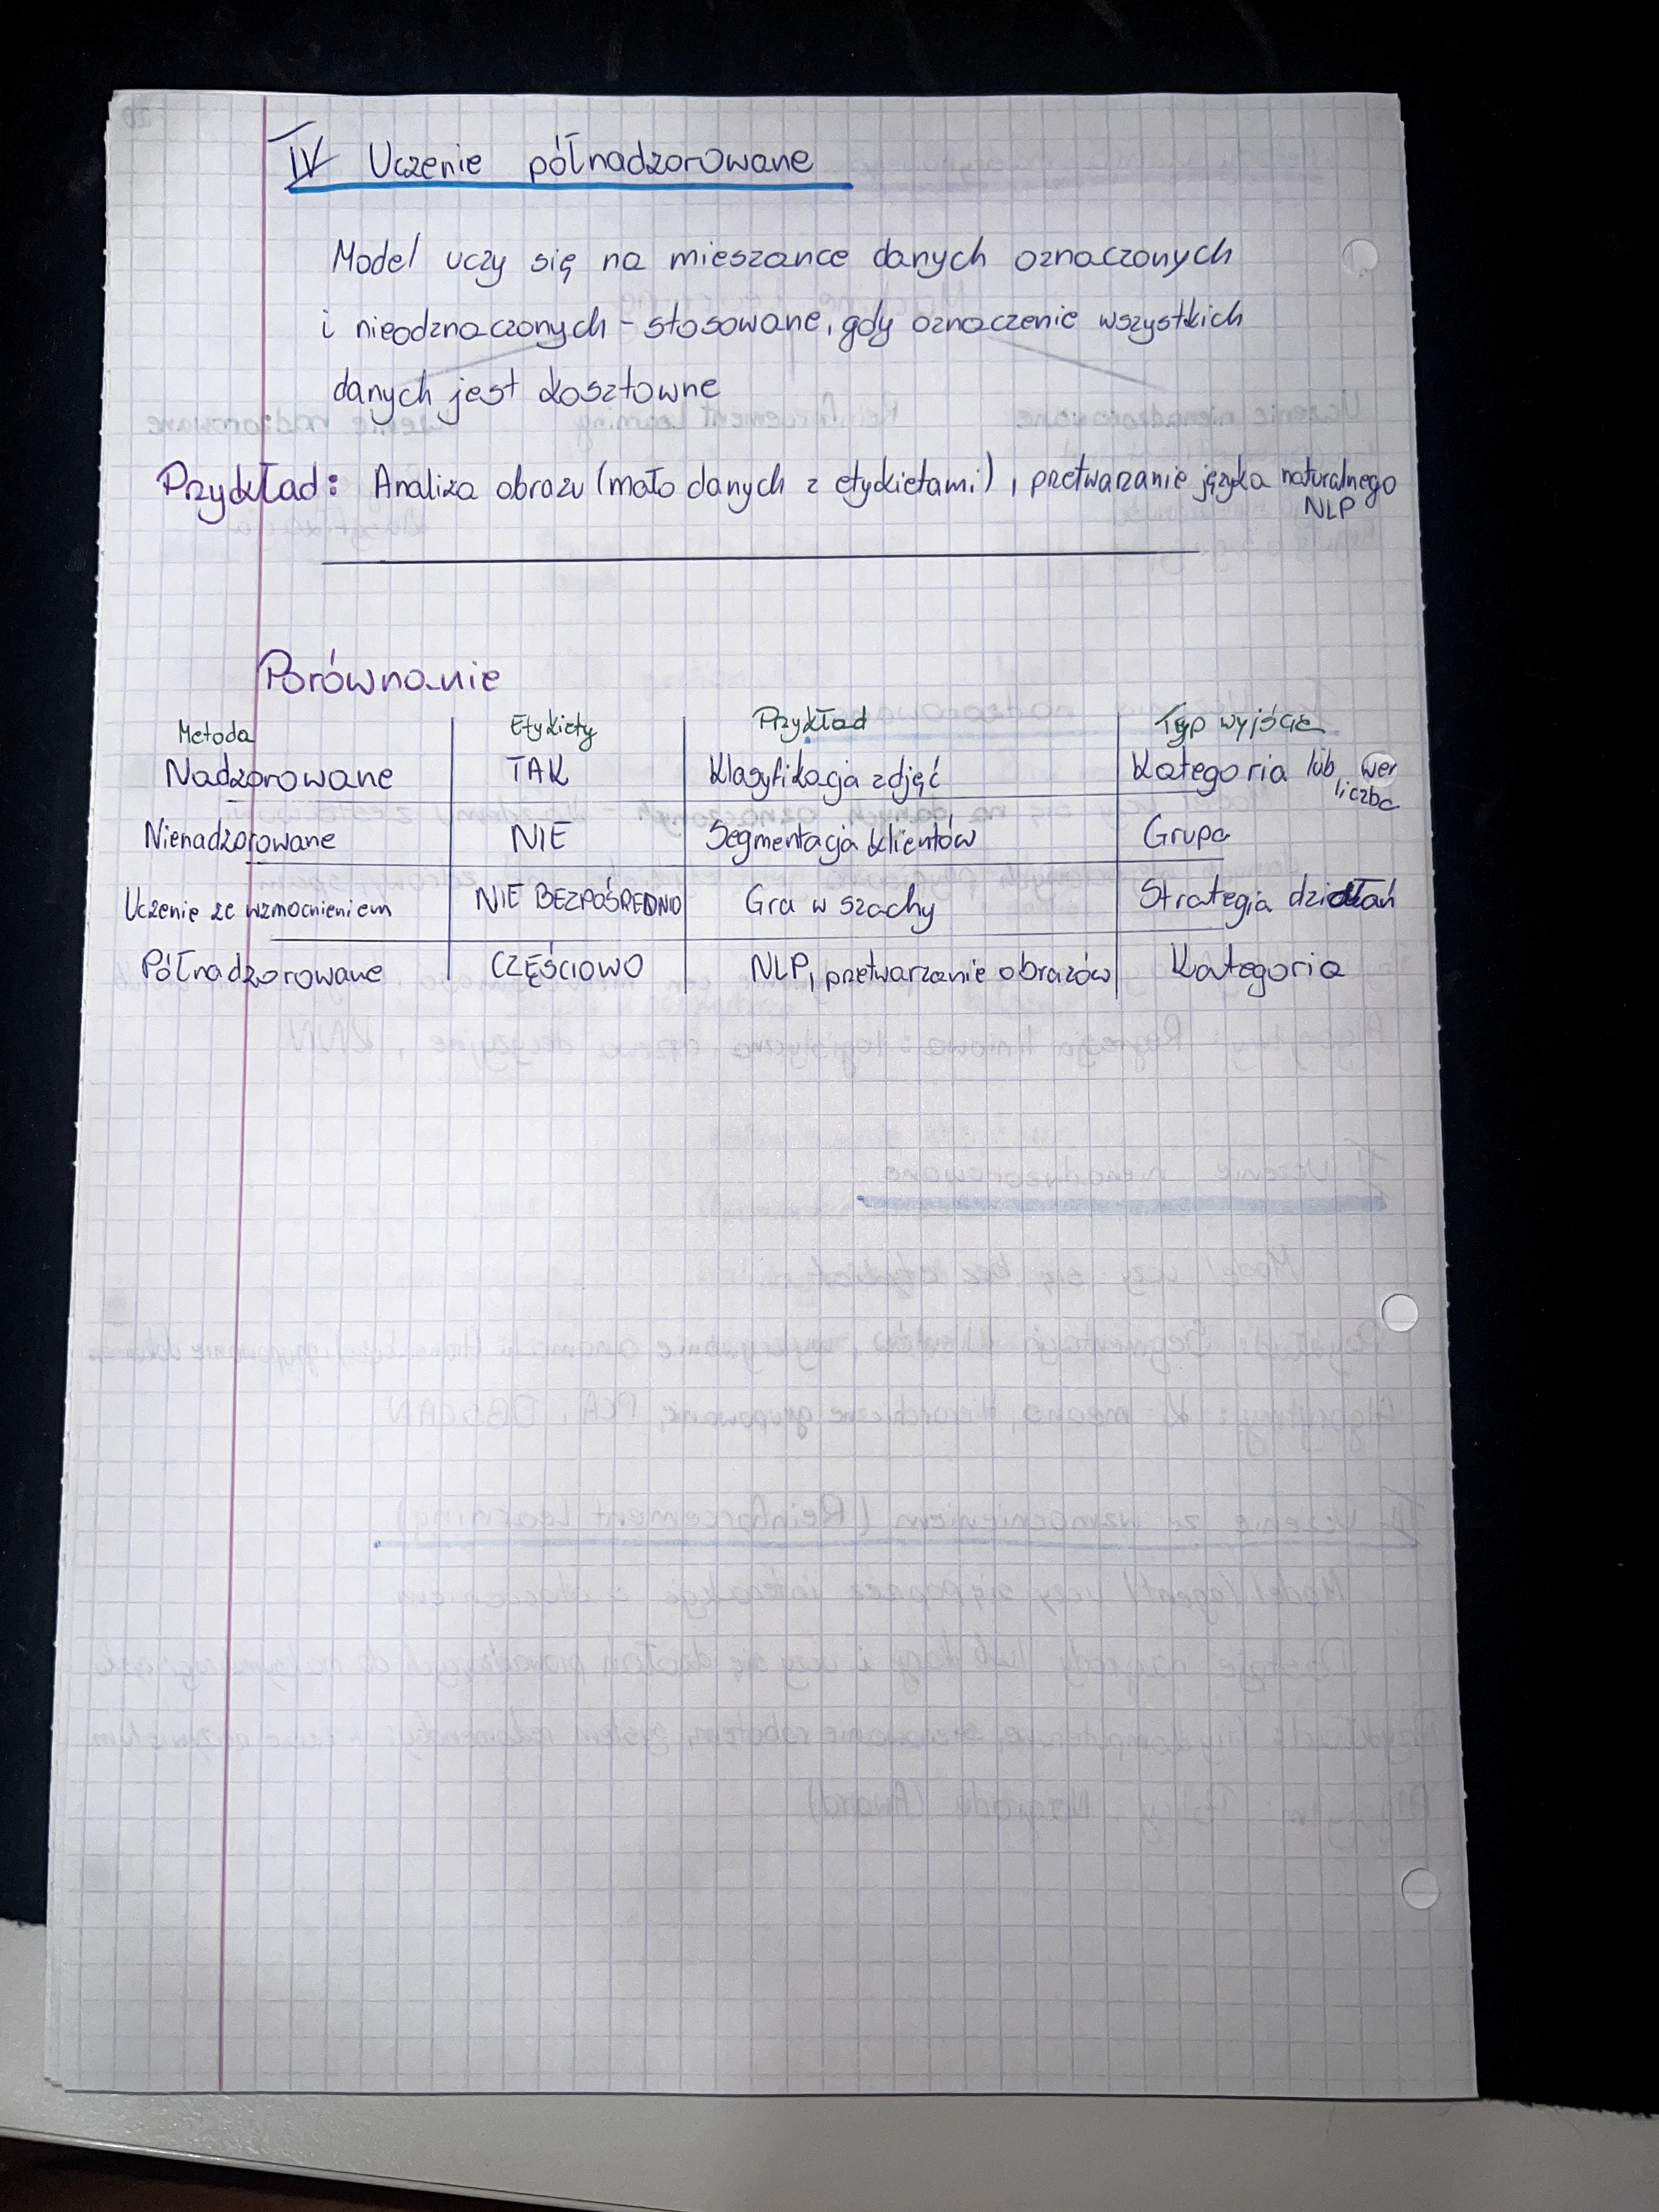 IV Uczenie półnadzorowane
Model uczy się na mieszance danych oznaczonych
i nieodznaczonych - stosowane, gdy oznaczenie wszystkich
danych jest kosztowne
Przykład: Analiza obrazu (mało danych z etykietami), pretwarzanie języka naturalnego
NLP
Porównanie
Metoda Etykiety Przykład Typ wyjścia
Nadzorowane TAK Klasyfikacja zdjęć Kategoria lub
liczba
Nienadzorowane NIE Segmentacja klientów Grupa
Uczenie ze wzmocnieniem NIE BEZPOŚREDNIO Gra w szachy Strategia działań
Półnadzorowane CZĘŚCIOWO NLP, pretwarzanie obrazów Kategoria